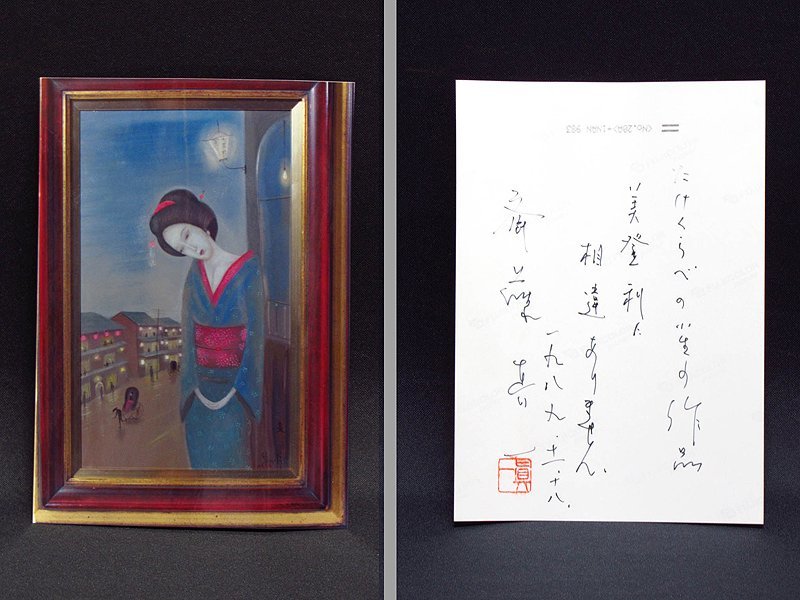 たけくらべの小生の作品
美登利に
相違ありません。
一九八九・十一・十八.
斎藤真一
眞一